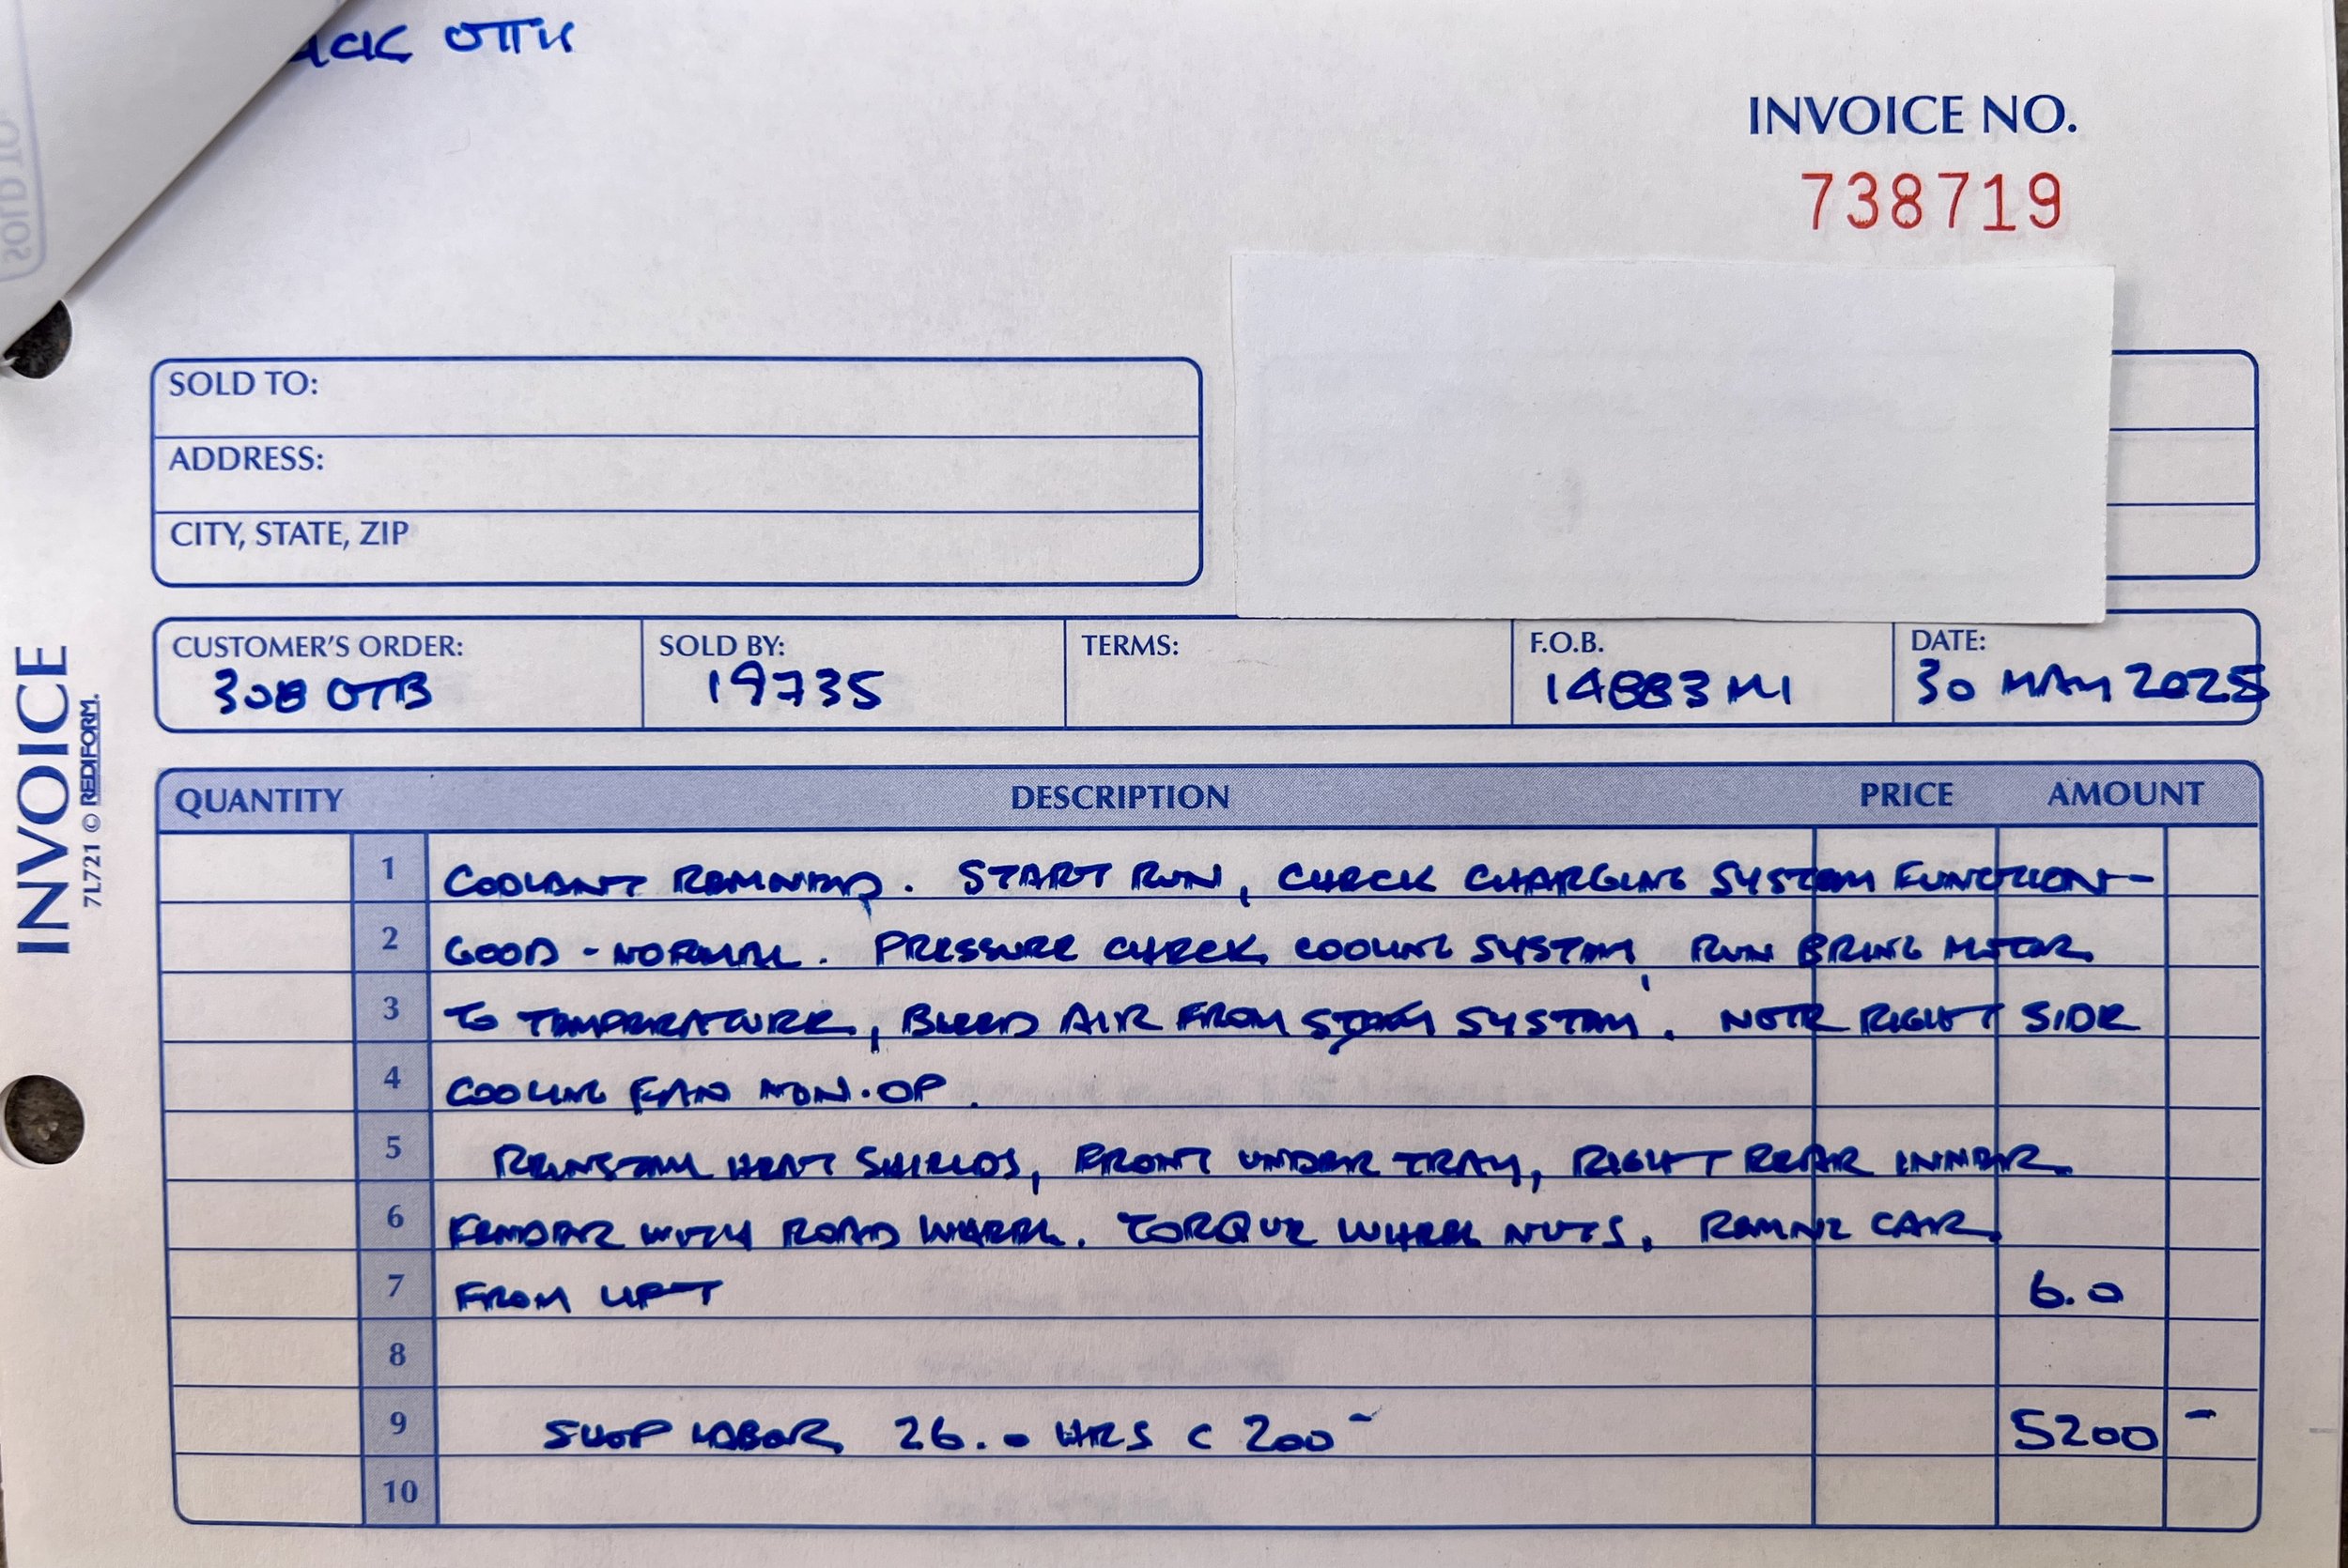 INVOICE NO.
738719
SOLD TO:
ADDRESS:
CITY, STATE, ZIP
CUSTOMER'S ORDER:
308 GTB
SOLD BY:
19735
TERMS:
F.O.B.
14883 MI
DATE:
30 MAY 2025
INVOICE
7L721 © REDIFORM.
QUANTITY DESCRIPTION PRICE AMOUNT
1 COOLANT REMOVED. START RUN, CHECK CHARGING SYSTEM FUNCTION-
2 GOOD - NORMAL. PRESSURE CHECK COOLING SYSTEM, RUN BRING MOTOR
3 TO TEMPERATURE, BLEED AIR FROM SYSTEM. NOTE RIGHT SIDE
4 COOLING FAN NON-OP.
5 REINSTALL HEAT SHIELDS, FRONT UNDER TRAY, RIGHT REAR INNER
6 FENDER WITH ROAD WHEEL. TORQUE WHEEL NUTS. REMOVE CAR
7 FROM LIFT 6.0
8
9 SHOP LABOR 26.0 HRS C 200 - 5200 -
10